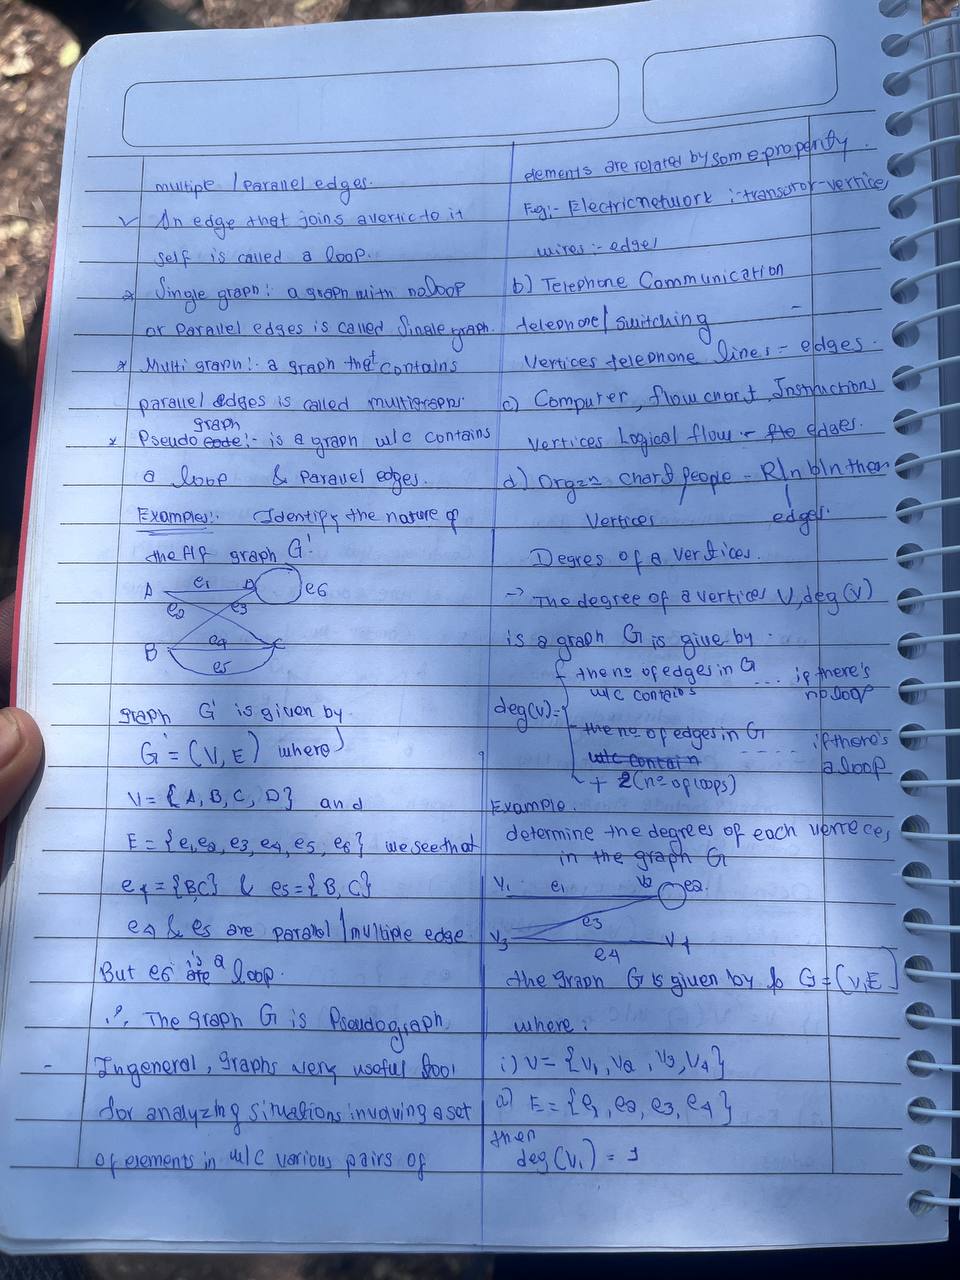 multiple / Parallel edges.
✓ An edge that joins a vertic to it
self is called a loop.
* Single graph: a graph with no loop
or Parallel edges is called Single graph.
* Multi graph:- a graph that contains
parallel edges is called multigraph.
graph
* Pseudo code:- is a graph w/c contains
a loop & Parallel edges.
Examples:- Identify the nature of
the Aff graph G'
A e1 D e6
e2 e3
B e4 C
e5
graph G' is given by
G' = (V, E) where
V = {A, B, C, D} and
E = {e1, e2, e3, e4, e5, e6} we see that
e4 = {B,C} & e5 = {B, C}
e4 & e5 are parallel / multiple edge
is a
But e6 are loop.
∴ The graph G is Pseudograph
- In general, graphs very useful tool
for analyzing situations involving a set
of elements in w/c various pairs of
elements are related by some property.
Eg:- Electric network :- transistor - vertice,
wires :- edges
b) Telephone Communication
telephone/ switching -
Vertices telephone lines = edges.
c) Computer, flow chart, Instructions
Vertices Logical flow - edges.
d) chard people - R/n b/n them
Vertices edges.
Degres of a vertices.
-> The degree of a vertices V, deg(V)
is a graph G is give by.
deg(v) = { the no of edges in G .... if there's
w/c contains no loop
the no of edges in G .... if there's
w/c contain a loop
+ 2(no of loops)
Example:
determine the degrees of each verrece,
in the graph G
V1 e1 V2 e2.
e3
V3 e4 V4
the graph G is given by G = (V, E)
where:
i) V = {V1, V2, V3, V4}
2) E = {e1, e2, e3, e4}
then
deg(V1) = 1